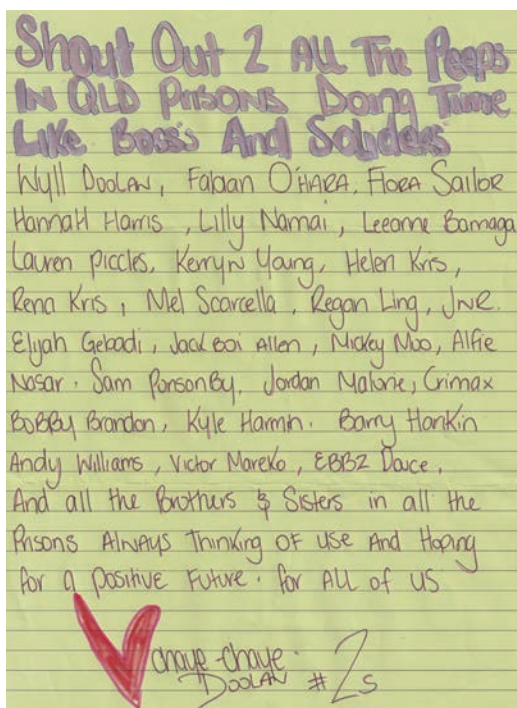 Shout Out 2 All The Peeps
In QLD Prisons Doing Time
Like Boss's And Soliders
Wyll Doolan, Fabian O'Hara, Flora Sailor
Hannah Harris, Lilly Namai, Leeanne Bamaga
Lauren Piccles, Kerryn Young, Helen Kris,
Rena Kris, Mel Scarcella, Regan Ling, JNR.
Elijah Gebadi, Jack Boi Allen, Mickey Moo, Alfie
Nasar. Sam PonsonBy, Jordan Malone, Crimax
BoBBy Brandon, Kyle Harmin. Barry Hankin
Andy Williams, Victor Mareko, EBBZ Dauce,
And all the Brothers & Sisters in all the
Prisons Always Thinking OF use And Hoping
for a positive Future. for ALL of US
chaye-chaye.
Doolan #2s